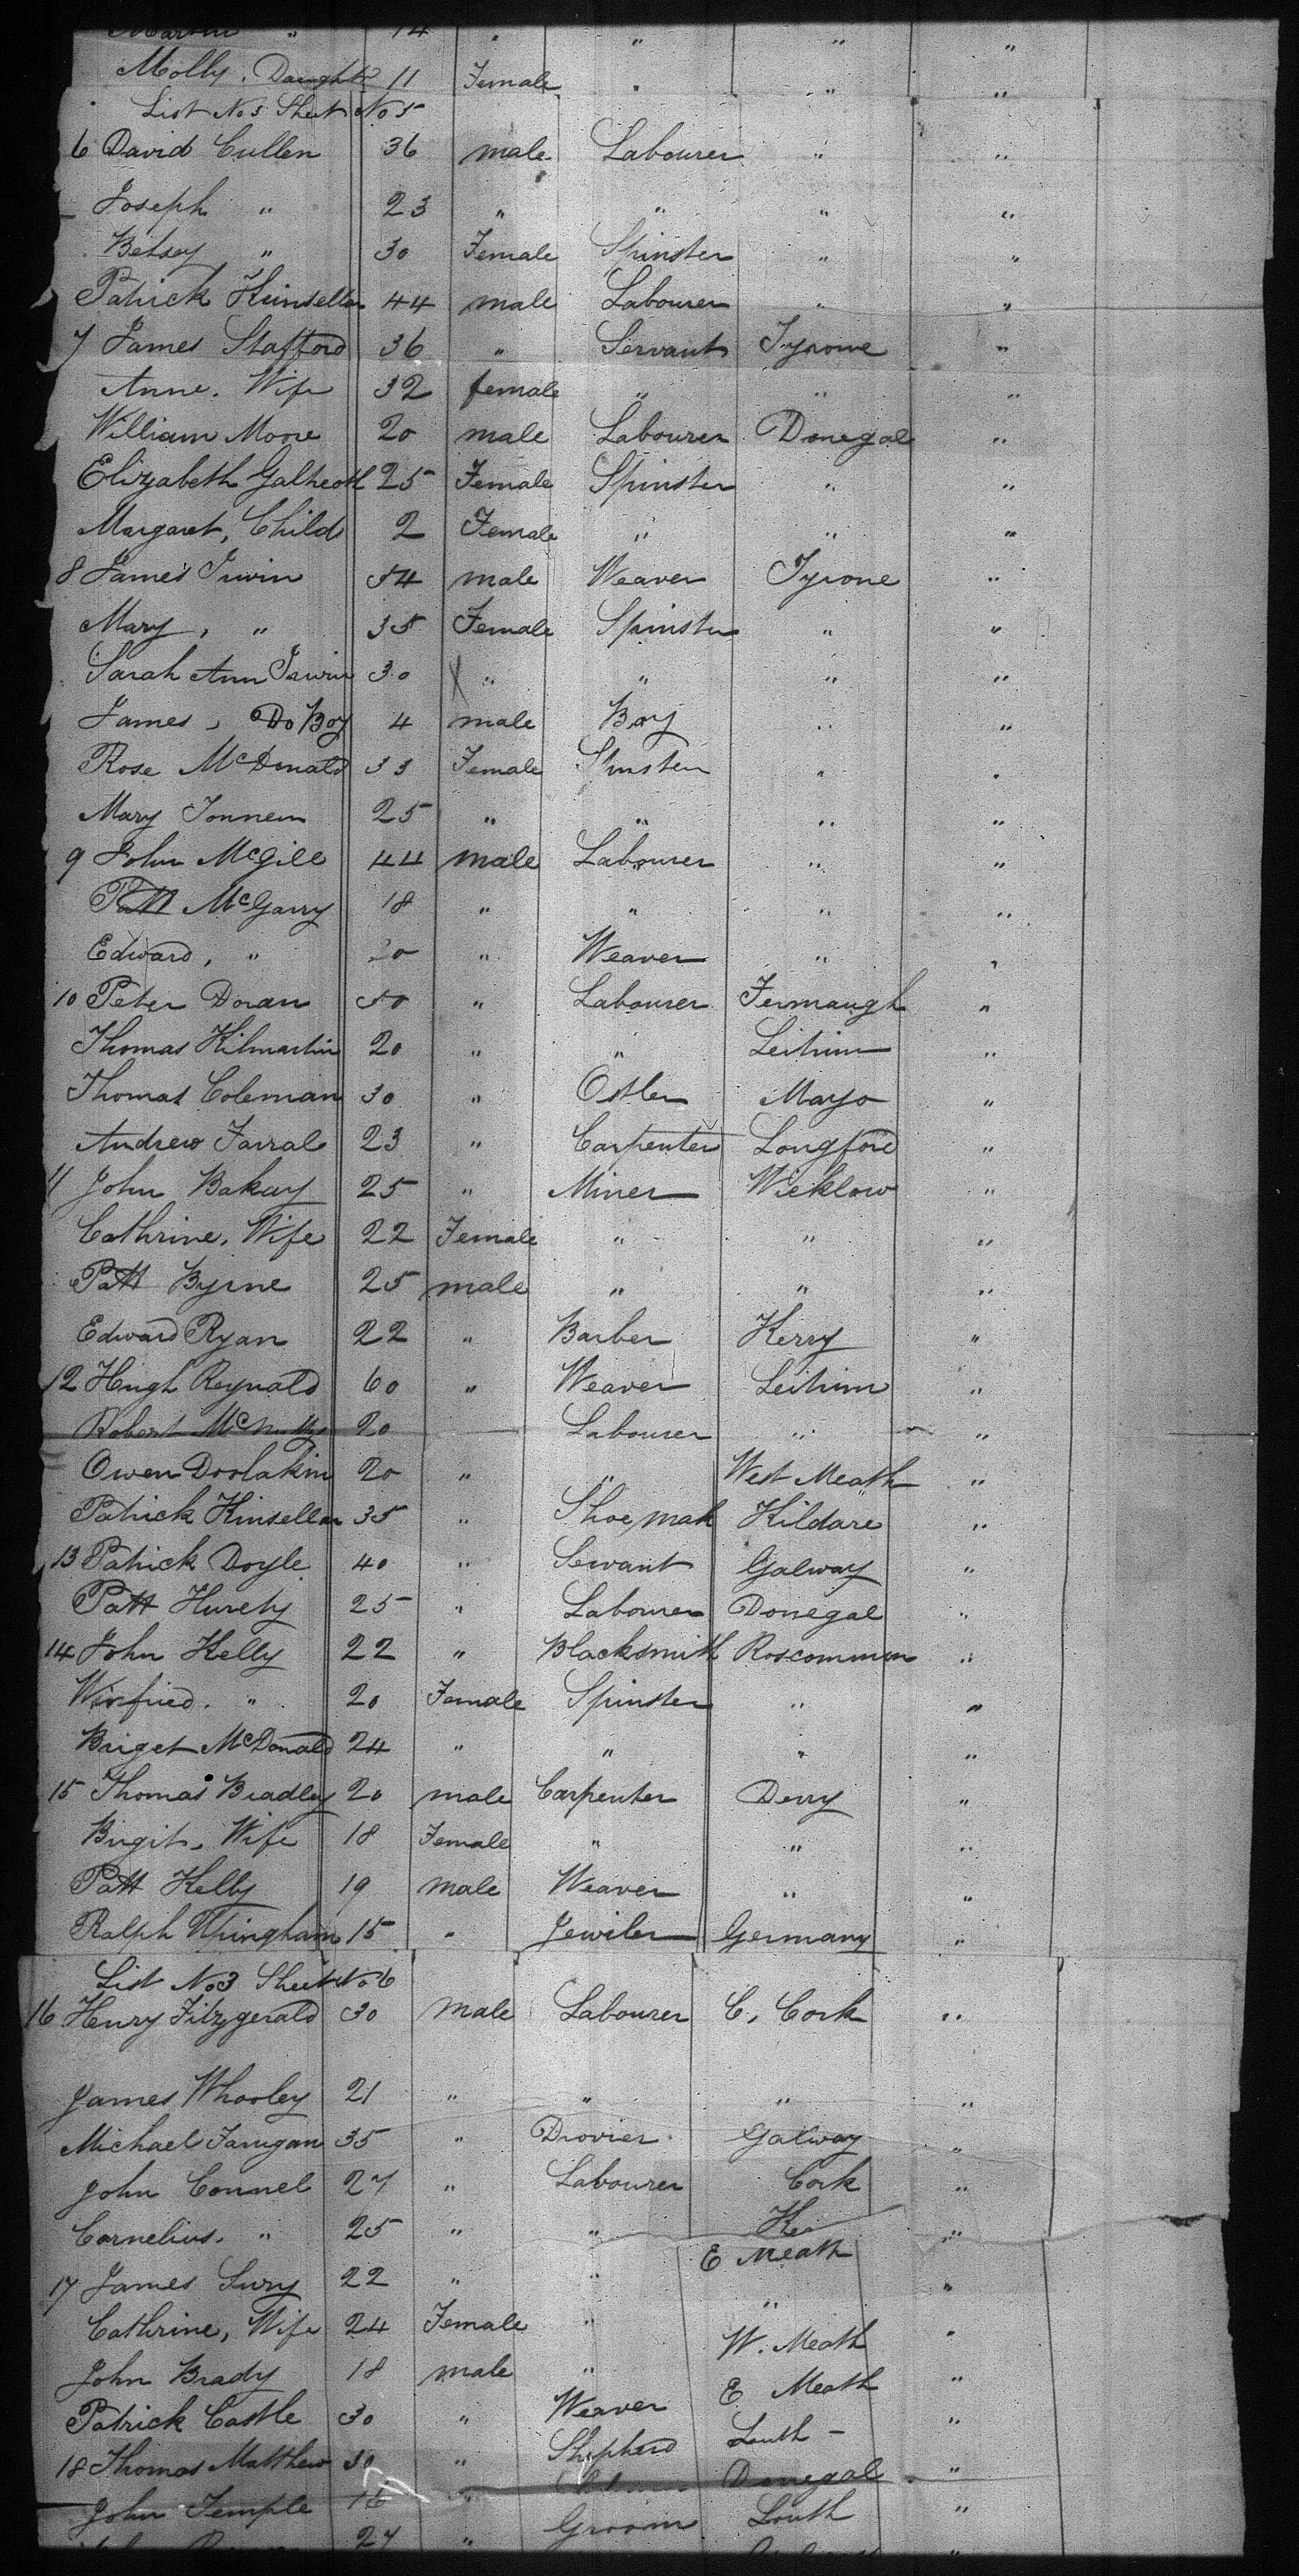 14 " " " "
Molly, Daught 11 Female " " "
List No 5 Sheet No 5
6 David Cullen 36 male Labourer " "
Joseph " 23 " " " "
Betsey " 30 Female Spinster " "
Patrick Kinsella 44 male Labourer " "
7 James Stafford 36 " Servant Tyrone "
Anne, Wife 32 female " " "
William Moore 20 male Labourer Donegal "
Elizabeth 25 Female Spinster " "
Margaret, Child 2 Female " " "
8 James Irwin 54 male Weaver Tyrone "
Mary, " 35 Female Spinster " "
Sarah Ann Irwin 30 " " " "
James, Do Boy 4 male Boy " "
Rose McDonald 33 Female Spinster " "
Mary 25 " " " "
9 John McGill 44 male Labourer " "
Patt McGarry 18 " " " "
Edward, " " Weaver " "
10 Peter Doran 50 " Labourer Fermaugh "
Thomas Kilmartin 20 " " Leitrim "
Thomas Coleman 30 " Ostler Mayo "
Andrew Farral 23 " Carpenter Longford "
11 John Bakay 25 " Miner Wicklow "
Cathrine, Wife 22 Female " " "
Patt Byrne 25 male " " "
Edward Ryan 22 " Barber Kerry "
12 Hugh Reynald 60 " Weaver Leitrim "
Robert McNulty 20 Labourer " "
Owen 20 " " West Meath "
Patrick Kinsellar 35 " Shoe mak Kildare "
13 Patrick Doyle 40 " Servant Galway "
Patt 25 " Labourer Donegal "
14 John Kelly 22 " Blacksmith Roscommon "
Winfried, " 20 Female Spinster " "
Briget McDonald 24 " " " "
15 Thomas Bradley 20 male Carpenter Derry "
Birgit, Wife 18 Female " " "
Patt Kelly 19 male Weaver " "
Ralph 15 " Jewiler Germany "
List No 3 Sheet No 6
16 Henry Fitzgerald 30 male Labourer C, Cork "
James Whooley 21 " " " "
Michael 35 " Drovier Galway "
John Connel 27 " Labourer Cork "
Cornelius, " 25 " " "
17 James 22 " " E Meath "
Cathrine, Wife 24 Female " " "
John Brady 18 male " W. Meath "
Patrick Castle 30 " Weaver E Meath "
18 Thomas Matthew 30 " Shepherd Louth "
John Temple 16 " Donegal "
27 " Groom Louth "